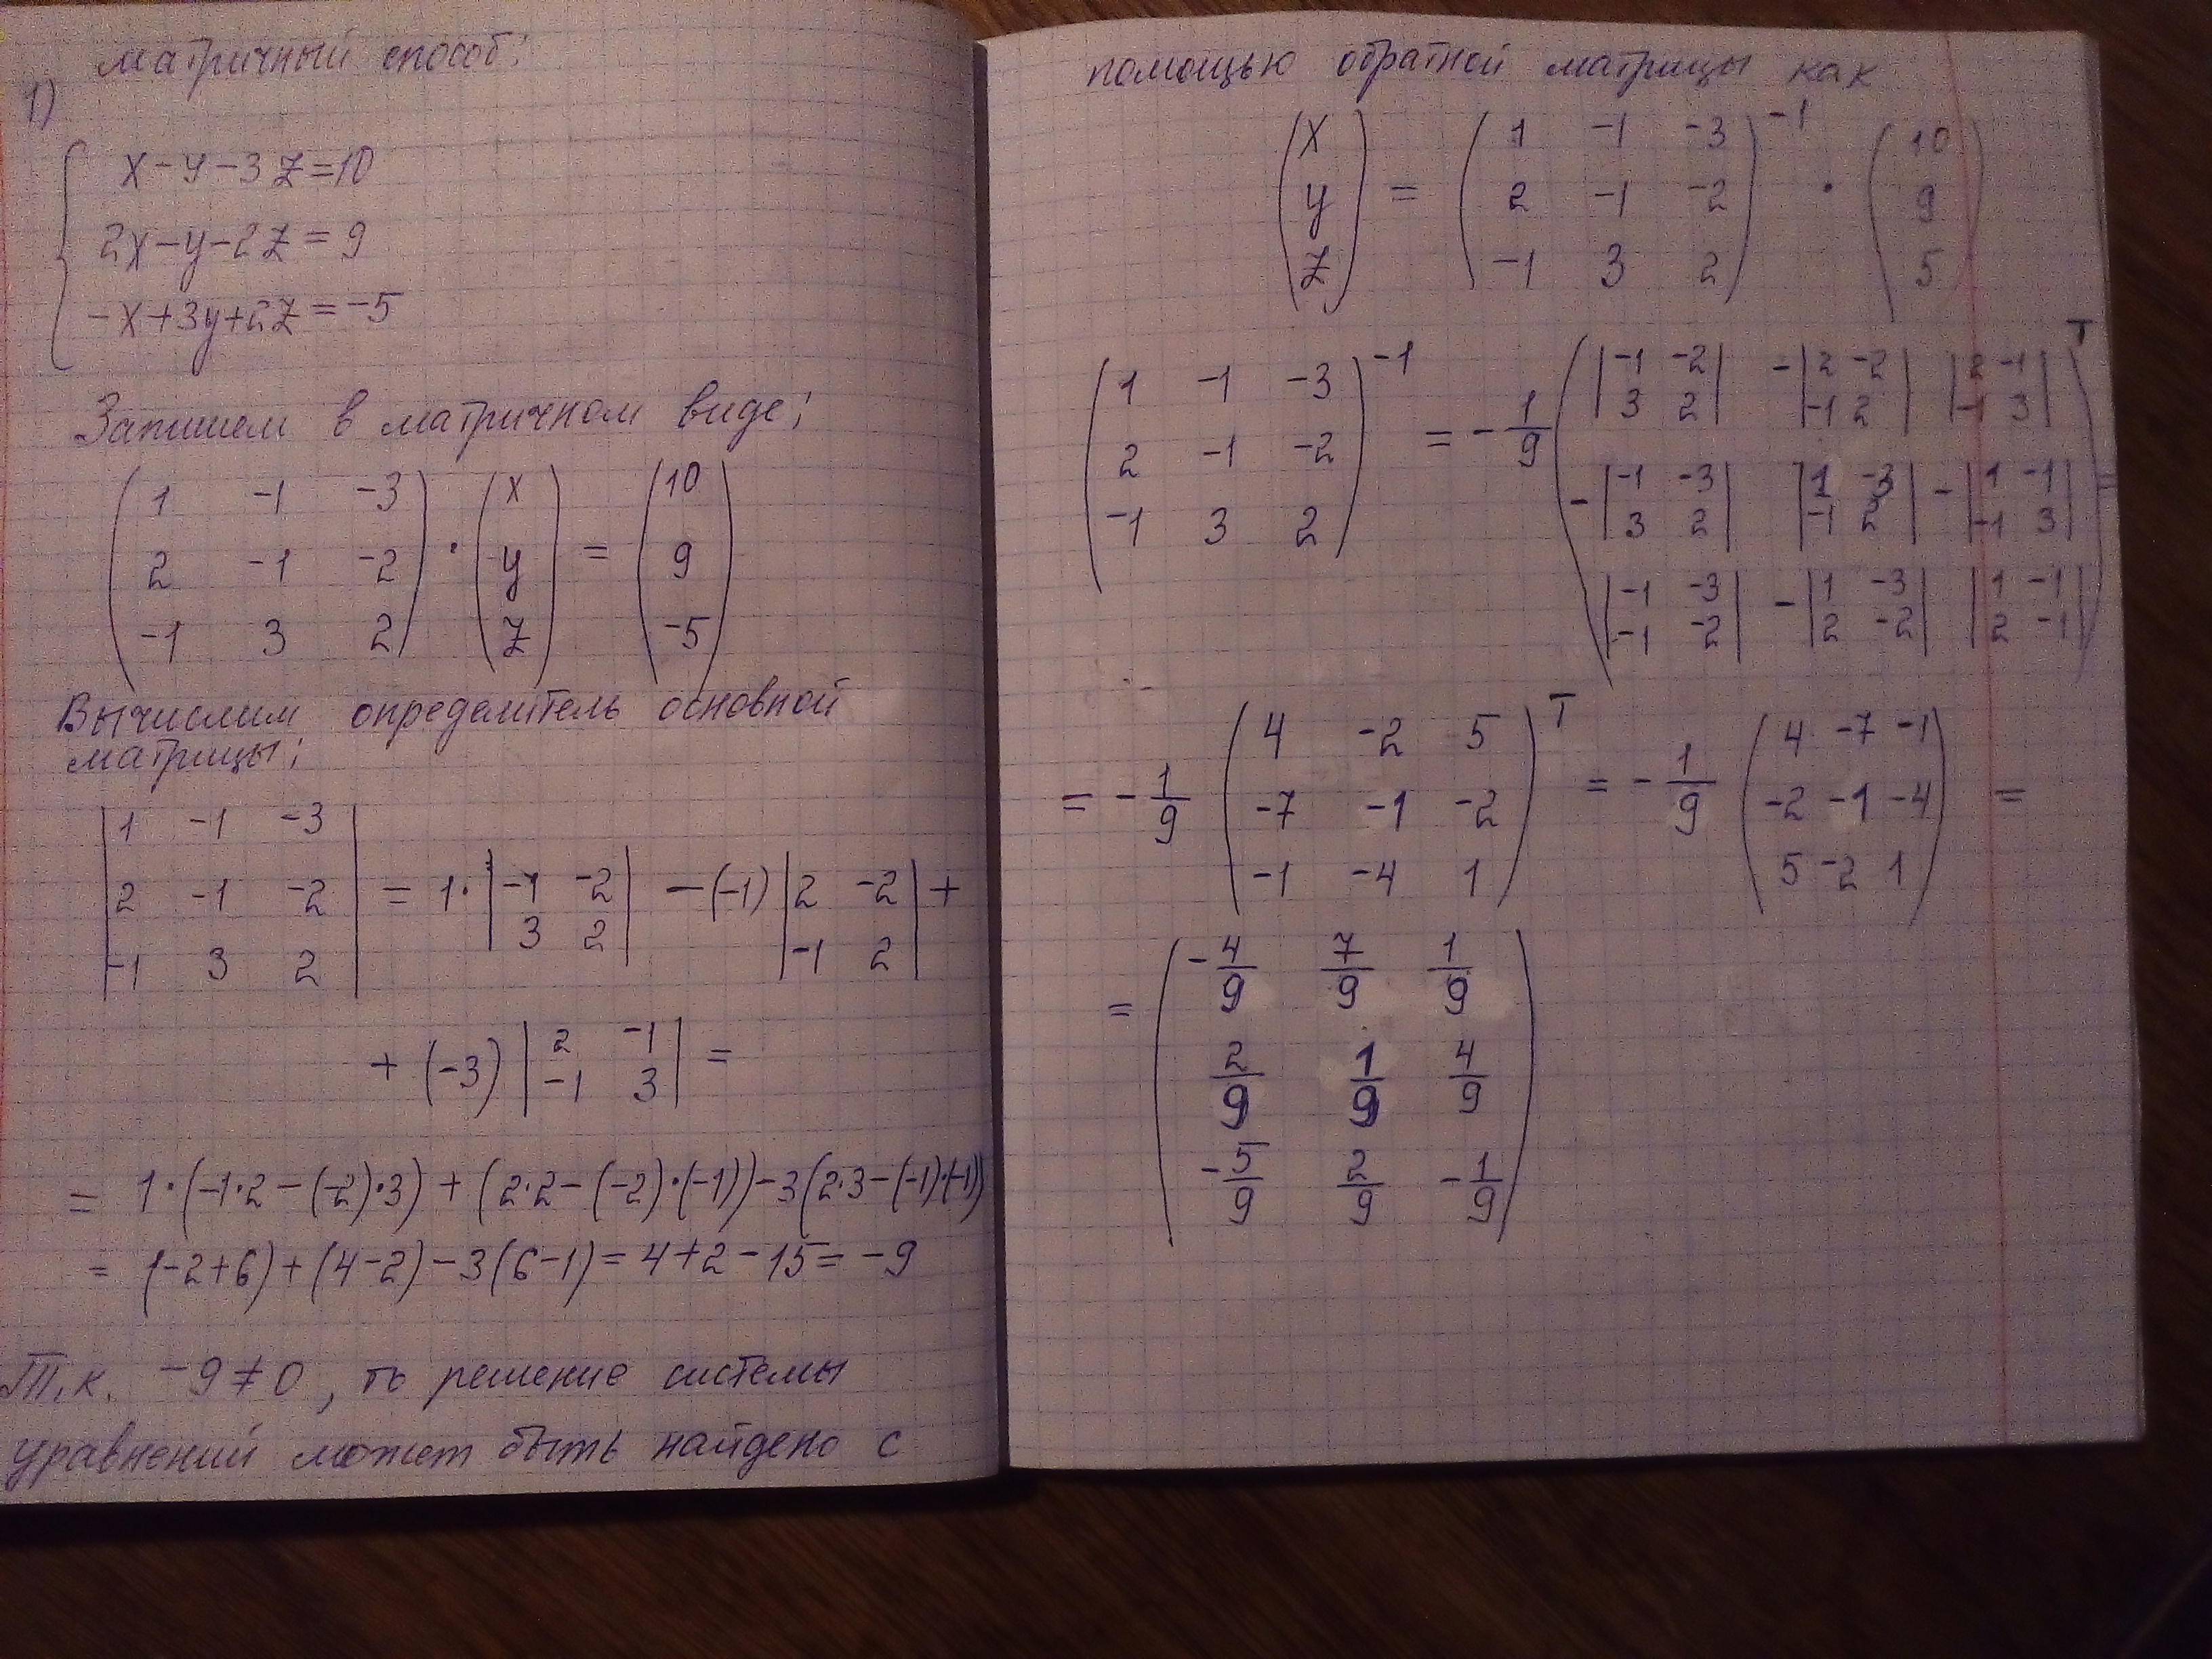 матричный способ:
1)
x-y-3z=10
2x-y-2z=9
-x+3y+2z=-5
Запишем в матричном виде:
(1 -1 -3) (x) (10)
(2 -1 -2) · (y) = (9)
(-1 3 2) (z) (-5)
Вычислим определитель основной
матрицы:
|1 -1 -3|
|2 -1 -2| = 1·|-1 -2| -(-1)|2 -2| +
|-1 3 2| |3 2| |-1 2|
+ (-3) |2 -1| =
|-1 3|
= 1·(-1·2-(-2)·3)+(2·2-(-2)·(-1))-3(2·3-(-1)·(-1))
= (-2+6)+(4-2)-3(6-1)=4+2-15=-9
Т.к. -9≠0, то решение системы
уравнений может быть найдено с
помощью обратной матрицы как
(x) (1 -1 -3)^-1 (10)
(y) = (2 -1 -2) · (9)
(z) (-1 3 2) (5)
(1 -1 -3)^-1 (|-1 -2| -|2 -2| |2 -1|)^T
(|3 2| |-1 2| |-1 3|)
(2 -1 -2) = -1/9 (-|-1 -3| |1 -3| -|1 -1|) =
(|3 2| |-1 2| |-1 3|)
(-1 3 2) (|-1 -3| -|1 -3| |1 -1|)
(|-1 -2| |2 -2| |2 -1|)
(4 -2 5)^T (4 -7 -1)
= -1/9 (-7 -1 -2) = -1/9 (-2 -1 -4) =
(-1 -4 1) (5 -2 1)
(-4/9 7/9 1/9)
= (2/9 1/9 4/9)
(-5/9 2/9 -1/9)